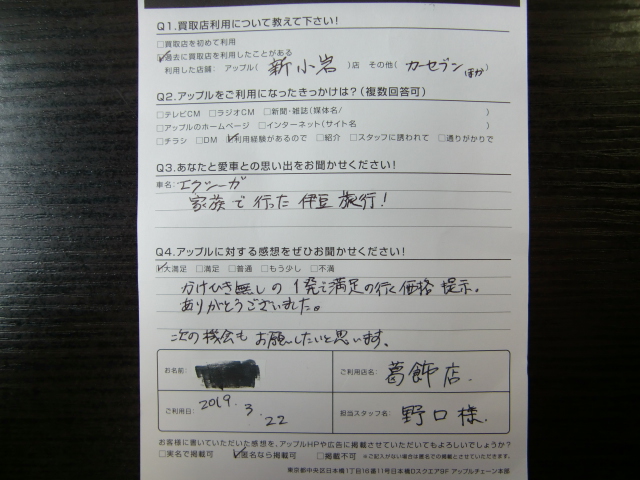 Q1.買取店利用について教えて下さい!
□買取店を初めて利用
☑過去に買取店を利用したことがある
利用した店舗: アップル( 新小岩 )店 その他( カーセブン ほか )
Q2.アップルをご利用になったきっかけは?(複数回答可)
□テレビCM □ラジオCM □新聞・雑誌(媒体名/ )
□アップルのホームページ □インターネット(サイト名 )
□チラシ □DM ☑利用経験があるので □紹介 □スタッフに誘われて □通りがかりで
Q3.あなたと愛車との思い出をお聞かせください!
車名: エクシーガ
家族で行った伊豆旅行!
Q4.アップルに対する感想をぜひお聞かせください!
☑大満足 □満足 □普通 □もう少し □不満
かけひき無しの1発で満足の行く価格提示。
ありがとうございました。
次の機会もお願いしたいと思います。
お名前:
ご利用店名: 葛飾店.
ご利用日: 2019.3.22
担当スタッフ名: 野口様.
お客様に書いていただいた感想を、アップルHPや広告に掲載させていただいてもよろしいでしょうか?
□実名で掲載可 ☑匿名なら掲載可 □掲載不可 ※ご記入がない場合は匿名での掲載とさせていただきます。
東京都中央区日本橋1丁目16番11号日本橋Dスクエア8F アップルチェーン本部